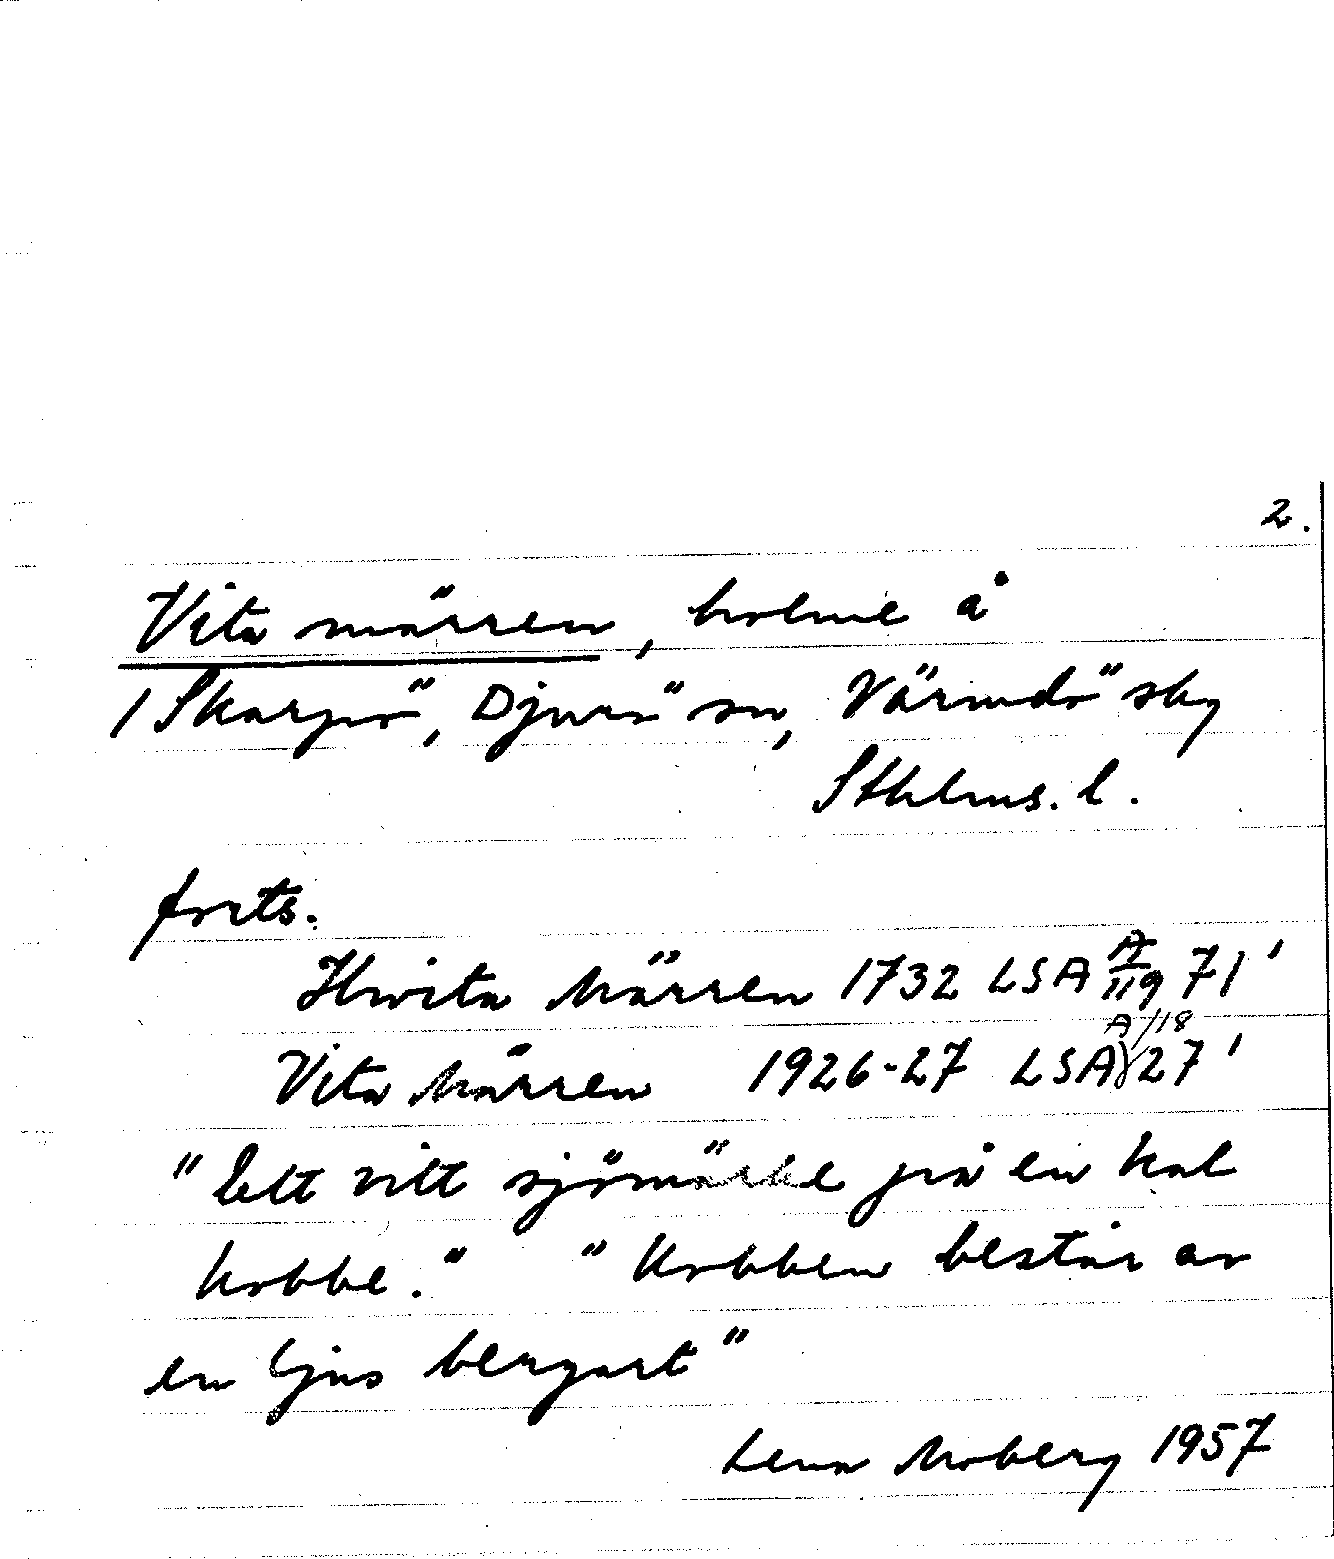 2.
Vita märren, holme å
/ Skarpö, Djurö sn, Värmdö sky
Sthlms. l.
forts.
Hwita Märren 1732 LSA A/119 71'
Vita Märren 1926-27 LSA A/118 27'
"Ett vitt sjömärke på en kal
kobbe." "Kobben består av
en ljus bergart"
Lena Moberg 1957